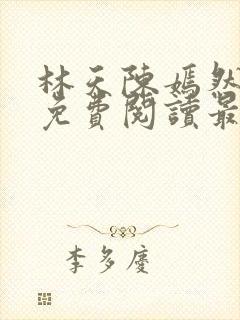 林天陳嫣然
免費閱讀最
李多慶